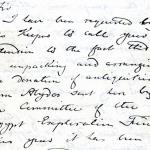 Sir
I have been requested by
the Keeper to call your
attention to the fact that
unpacking and arranging
donation of antiquities
from Abydos sent here by
Committee of the
Egypt Exploration Fund
this year it has been